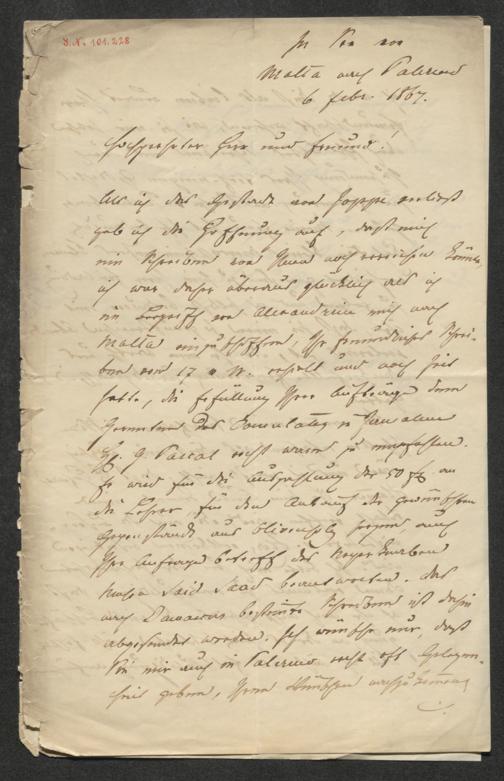 I.N. 101.228
In See von
Malta nach Palermo
6 Febr. 1867.
Hochverehrter Herr und Freund!
Als ich das Gestade von Joppe verließ
gab ich die Hoffnung auf, daß mich
ein Schreiben von Ihnen noch erreichen könne,
ich war daher überaus glücklich als ich
im Begriff von Alexandrien mich nach
Malta einzuschiffen, Ihr freundliches Schrei-
ben vom 17 v. M. erhielt und noch Zeit
hatte, die Erfüllung Ihrer Aufträge dem
des Consulates in Jerusalem
H. J. Pascal recht warm zu empfehlen.
Er wird für die Auszahlung der 50 an
die Lehrer, für den Ankauf der gewünschten
Gegenstände aus Olivenholz sorgen und
Ihre Anfrage betreff des
Said Saad beantworten. Das
nach Damascus bestimmte Schreiben ist dahin
abgesendet worden. Ich wünsche nur, daß
Sie mir auch in Palermo recht oft Gelegen-
heit geben, Ihren Wünschen nachzukommen